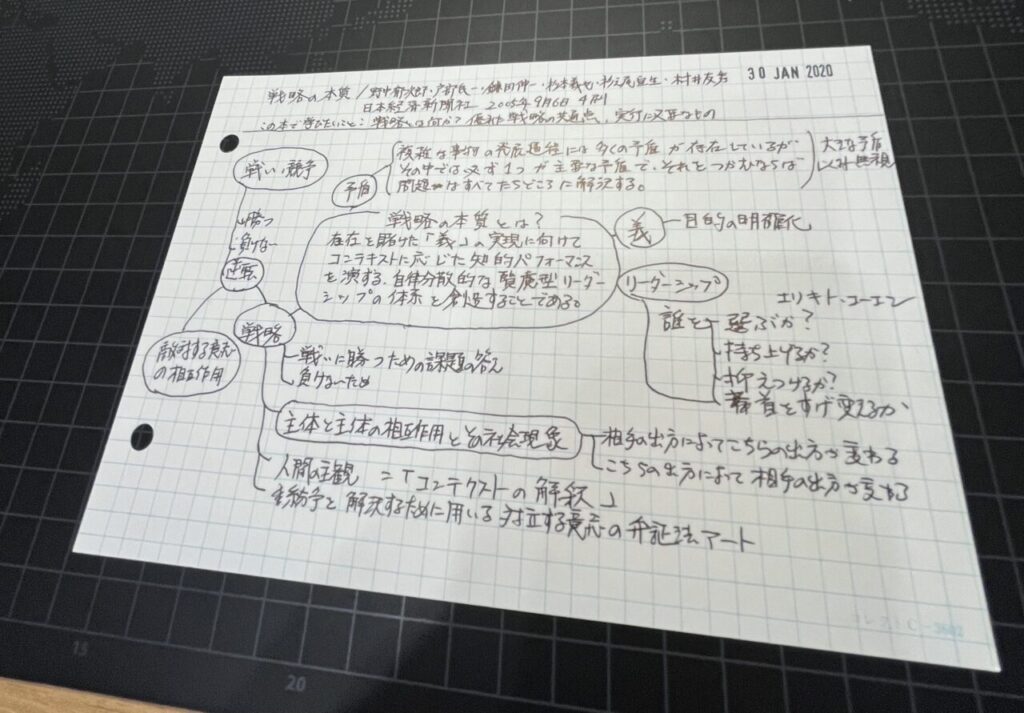 30 JAN 2020
戦略の本質/野中郁次郎・戸部良一・鎌田伸一・杉本義也・杉之尾宜生・村井友秀
日本経済新聞社 2005年9月6日 4刷
この本で学びたいこと:戦略とは何か?優れた戦略の共通点、実行に必要なもの
戦い、競争
勝つ
負けない
逆転
敵対する意志
の相互作用
矛盾
複雑な事物の発展過程には多くの矛盾が存在しているが
その中では必ず1つが主要な矛盾で、それをつかむならば
問題はすべてたちどころに解決する。
大きな矛盾
戦略の本質とは?
存在を賭けた「義」の実現に向けて
コンテキストに応じた知的パフォーマンス
を演ずる、自律分散的な賢慮型リーダー
シップの体系を創造することである。
義
目的の明確化
リーダーシップ
エリオット・コーエン
誰を
選ぶか?
持ち上げるか?
抑えつけるか?
首をすげ変えるか
戦略
戦いに勝つための課題の答え
負けないため
主体と主体の相互作用とその社会現象
相手の出方によってこちらの出方が変わる
こちらの出方によって相手の出方が変わる
人間の主観 =「コンテクストの解釈」
紛争を解決するために用いる対立する意志の弁証法アート
コレクト C-3602
15
20